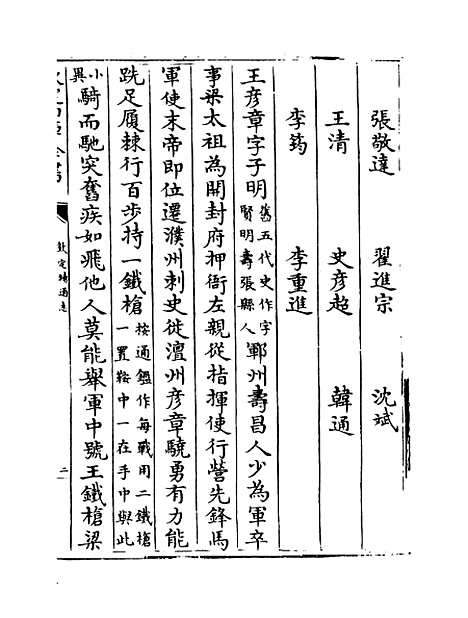 張敬達　翟進宗　沈斌
王清　史彦超　韓通
李筠　李重進
王彦章字子明舊五代史作字賢明壽張縣人鄆州壽昌人少為軍卒
事梁太祖為開封府押衙左親從指揮使行營先鋒馬
軍使末帝即位遷濮州刺史徙澶州彦章驍勇有力能
跣足履棘行百步持一鐵槍按通鑑作每戰用二鐵槍一置鞍中一在手中與此
小異騎而馳突奮疾如飛他人莫能舉軍中號王鐵槍梁
欽定續通志
二